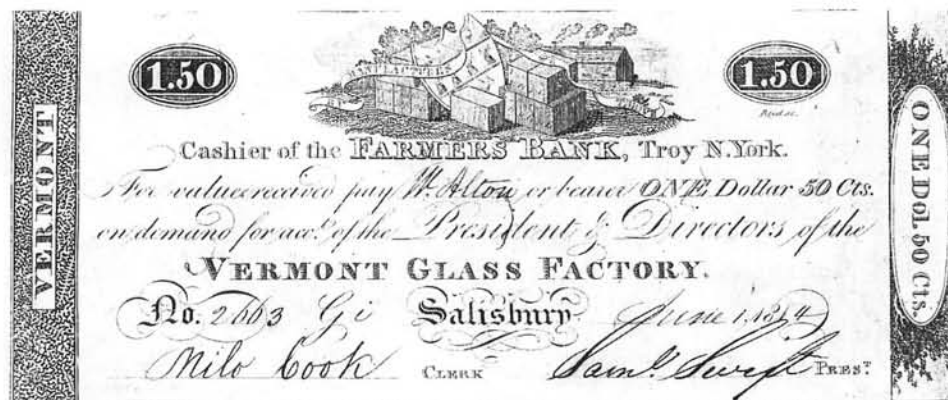 1.50
1.50
MANUFACTURERS
Read sc.
Cashier of the FARMERS BANK, Troy N.York.
For value received pay W. Alton or bearer ONE Dollar 50 Cts.
on demand for acct. of the President & Directors of the
VERMONT GLASS FACTORY.
No. 2663 Gi Salisbury June 1, 1814
Milo Cook CLERK Saml. Swift PREST
VERMONT
ONE Dol. 50 Cts.